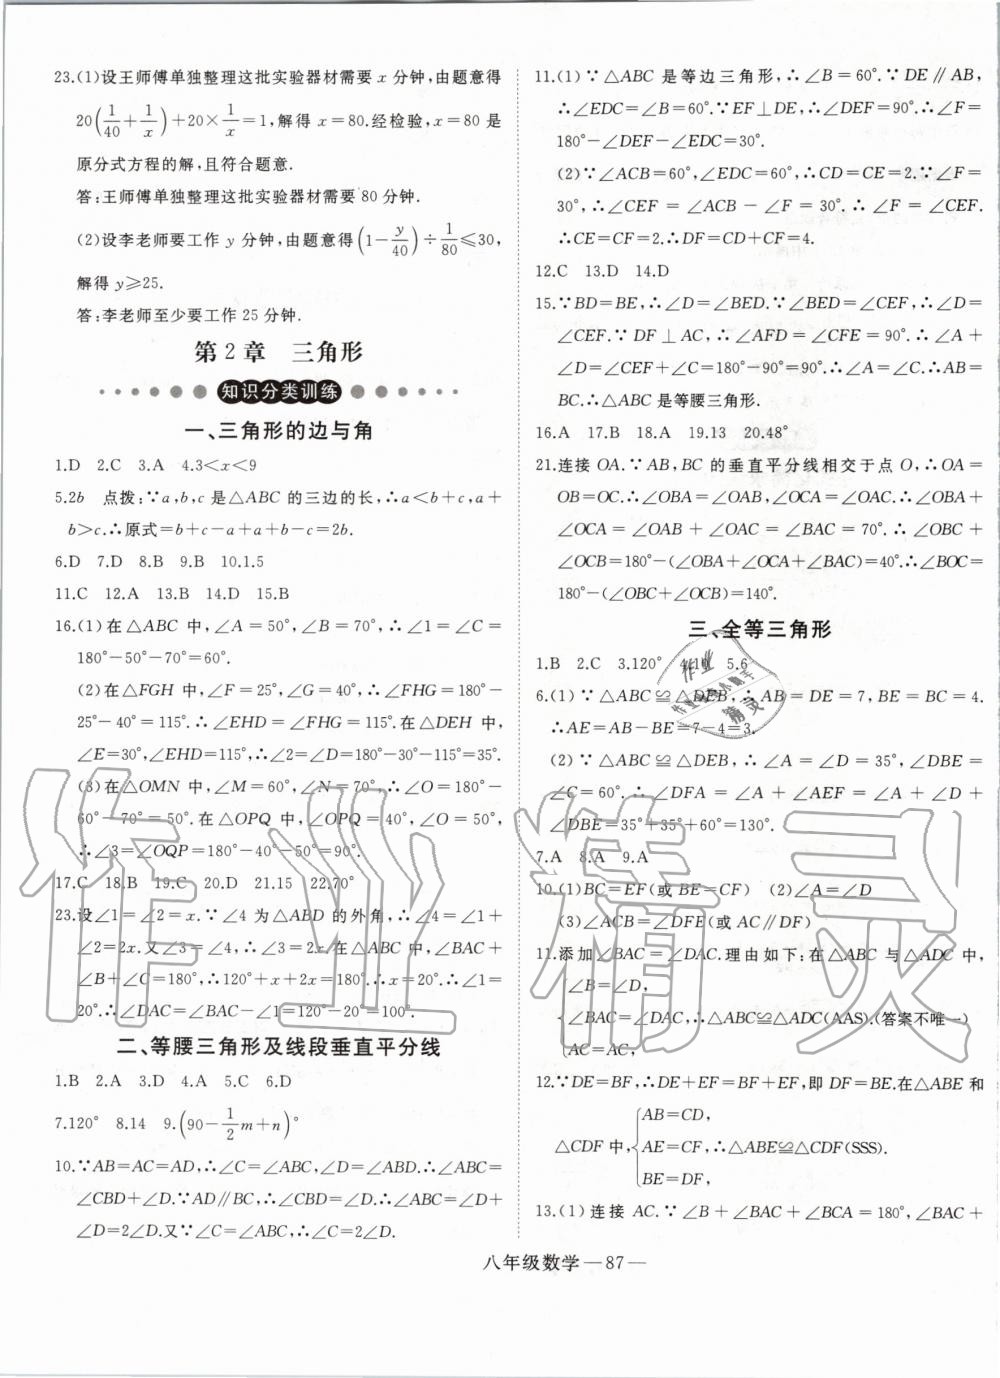 23.(1)设王师傅单独整理这批实验器材需要 x 分钟,由题意得
20(1/40+1/x)+20×1/x=1,解得 x=80.经检验,x=80 是
原分式方程的解,且符合题意.
答:王师傅单独整理这批实验器材需要 80 分钟.
(2)设李老师要工作 y 分钟,由题意得(1-y/40)÷1/80≤30,
解得 y≥25.
答:李老师至少要工作 25 分钟.
第 2 章 三角形
知识分类训练
一、三角形的边与角
1.D 2.C 3.A 4.3<x<9
5.2b 点拨:∵a,b,c 是△ABC 的三边的长,∴a<b+c,a+
b>c.∴原式=b+c-a+a+b-c=2b.
6.D 7.D 8.B 9.B 10.1.5
11.C 12.A 13.B 14.D 15.B
16.(1)在△ABC 中,∠A=50°,∠B=70°,∴∠1=∠C=
180°-50°-70°=60°.
(2)在△FGH 中,∠F=25°,∠G=40°,∴∠FHG=180°-
25°-40°=115°.∴∠EHD=∠FHG=115°.在△DEH 中,
∠E=30°,∠EHD=115°,∴∠2=∠D=180°-30°-115°=35°.
(3)在△OMN 中,∠M=60°,∠N=70°,∴∠O=180°-
60°-70°=50°.在△OPQ 中,∠OPQ=40°,∠O=50°,
∴∠3=∠OQP=180°-40°-50°=90°.
17.C 18.B 19.C 20.D 21.15 22.70°
23.设∠1=∠2=x.∵∠4 为△ABD 的外角,∴∠4=∠1+
∠2=2x.又∠3=∠4,∴∠3=2x.在△ABC 中,∠BAC+
∠B+∠C=180°,∴120°+x+2x=180°.∴x=20°.∴∠1=
20°.∴∠DAC=∠BAC-∠1=120°-20°=100°.
二、等腰三角形及线段垂直平分线
1.B 2.A 3.D 4.A 5.C 6.D
7.120° 8.14 9.(90-1/2m+n)°
10.∵AB=AC=AD,∴∠C=∠ABC,∠D=∠ABD.∴∠ABC=
∠CBD+∠D.∵AD∥BC,∴∠CBD=∠D.∴∠ABC=∠D+
∠D=2∠D.又∵∠C=∠ABC,∴∠C=2∠D.
11.(1)∵△ABC 是等边三角形,∴∠B=60°.∵DE∥AB,
∴∠EDC=∠B=60°.∵EF⊥DE,∴∠DEF=90°.∴∠F=
180°-∠DEF-∠EDC=30°.
(2)∵∠ACB=60°,∠EDC=60°,∴CD=CE=2.∵∠F=
30°,∴∠CEF=∠ACB-∠F=30°.∴∠F=∠CEF.
∴CE=CF=2.∴DF=CD+CF=4.
12.C 13.D 14.D
15.∵BD=BE,∴∠D=∠BED.∵∠BED=∠CEF,∴∠D=
∠CEF.∵DF⊥AC,∴∠AFD=∠CFE=90°.∴∠A+
∠D=∠CEF+∠C=180°-90°=90°.∴∠A=∠C.∴AB=
BC.∴△ABC 是等腰三角形.
16.A 17.B 18.A 19.13 20.48°
21.连接 OA.∵AB,BC 的垂直平分线相交于点 O,∴OA=
OB=OC.∴∠OBA=∠OAB,∠OCA=∠OAC.∴∠OBA+
∠OCA=∠OAB+∠OAC=∠BAC=70°.∴∠OBC+
∠OCB=180°-(∠OBA+∠OCA+∠BAC)=40°.∴∠BOC=
180°-(∠OBC+∠OCB)=140°.
三、全等三角形
1.B 2.C 3.120° 4.10 5.6
6.(1)∵△ABC≌△DEB,∴AB=DE=7,BE=BC=4.
∴AE=AB-BE=7-4=3.
(2)∵△ABC≌△DEB,∴∠A=∠D=35°,∠DBE=
∠C=60°.∴∠DFA=∠A+∠AEF=∠A+∠D+
∠DBE=35°+35°+60°=130°.
7.A 8.A 9.A
10.(1)BC=EF(或 BE=CF) (2)∠A=∠D
(3)∠ACB=∠DFE(或 AC∥DF)
11.添加∠BAC=∠DAC.理由如下:在△ABC 与△ADC 中,
∠B=∠D,
∠BAC=∠DAC,∴△ABC≌△ADC(AAS).(答案不唯一)
AC=AC,
12.∵DE=BF,∴DE+EF=BF+EF,即 DF=BE.在△ABE 和
AB=CD,
△CDF 中,AE=CF,∴△ABE≌△CDF(SSS).
BE=DF,
13.(1)连接 AC.∵∠B+∠BAC+∠BCA=180°,∠BAC+
八年级数学—87—
作业精灵